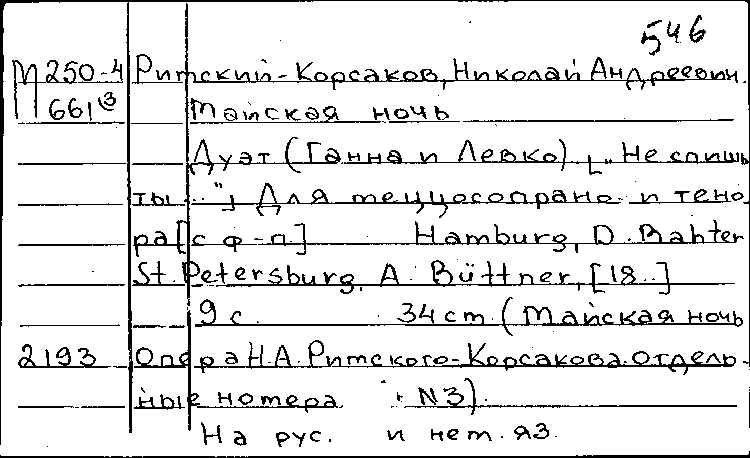 546
М250-4 Римский-Корсаков, Николай Андреевич.
661 Майская ночь
Дуэт (Ганна и Левко). [„Не спишь
ты..."] Для меццосопрано и тено-
ра [с ф-п.] Hamburg, D. Rahter
St. Petersburg, A. Büttner, [18..]
9 с. 34 cm. (Майская ночь
2193 Опера Н.А. Римского-Корсакова. Отдель-
ные номера. N3).
На рус. и нем. яз.